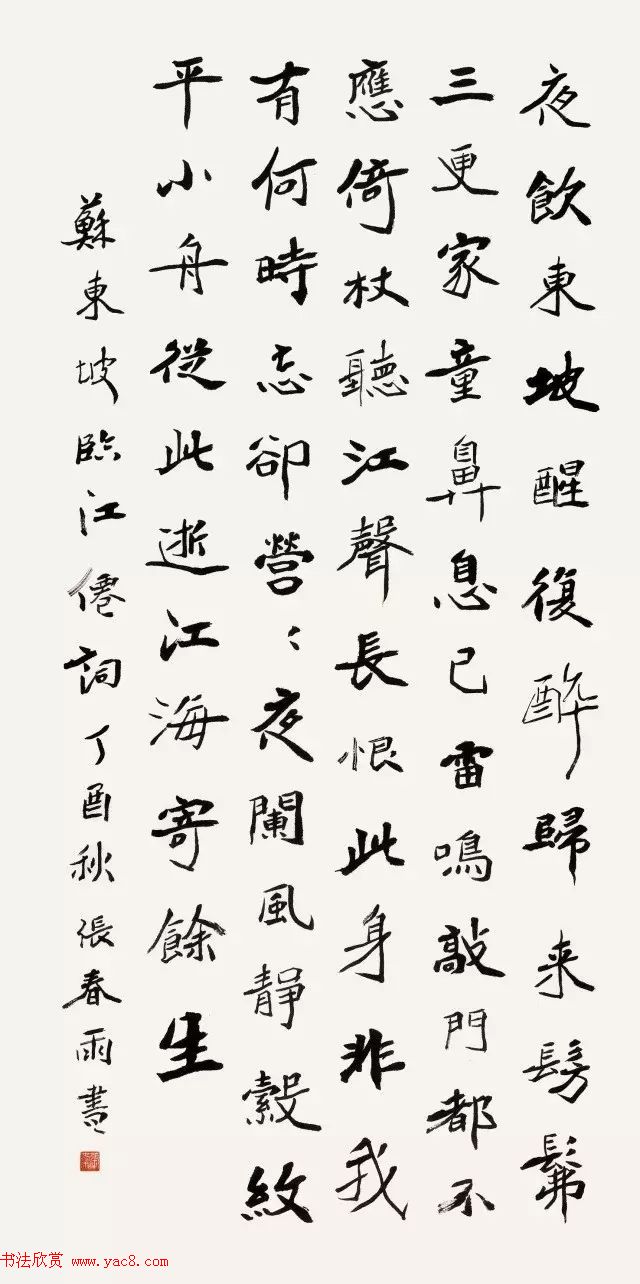 夜飲東坡醒復醉歸来髣髴
三更家童鼻息已雷鳴敲門都不
應倚杖聽江聲長恨此身非我
有何時忘卻營〻夜闌風靜縠紋
平小舟從此逝江海寄餘生
蘇東坡臨江僊詞丁酉秋張春雨書
书法欣赏 www.yac8.com